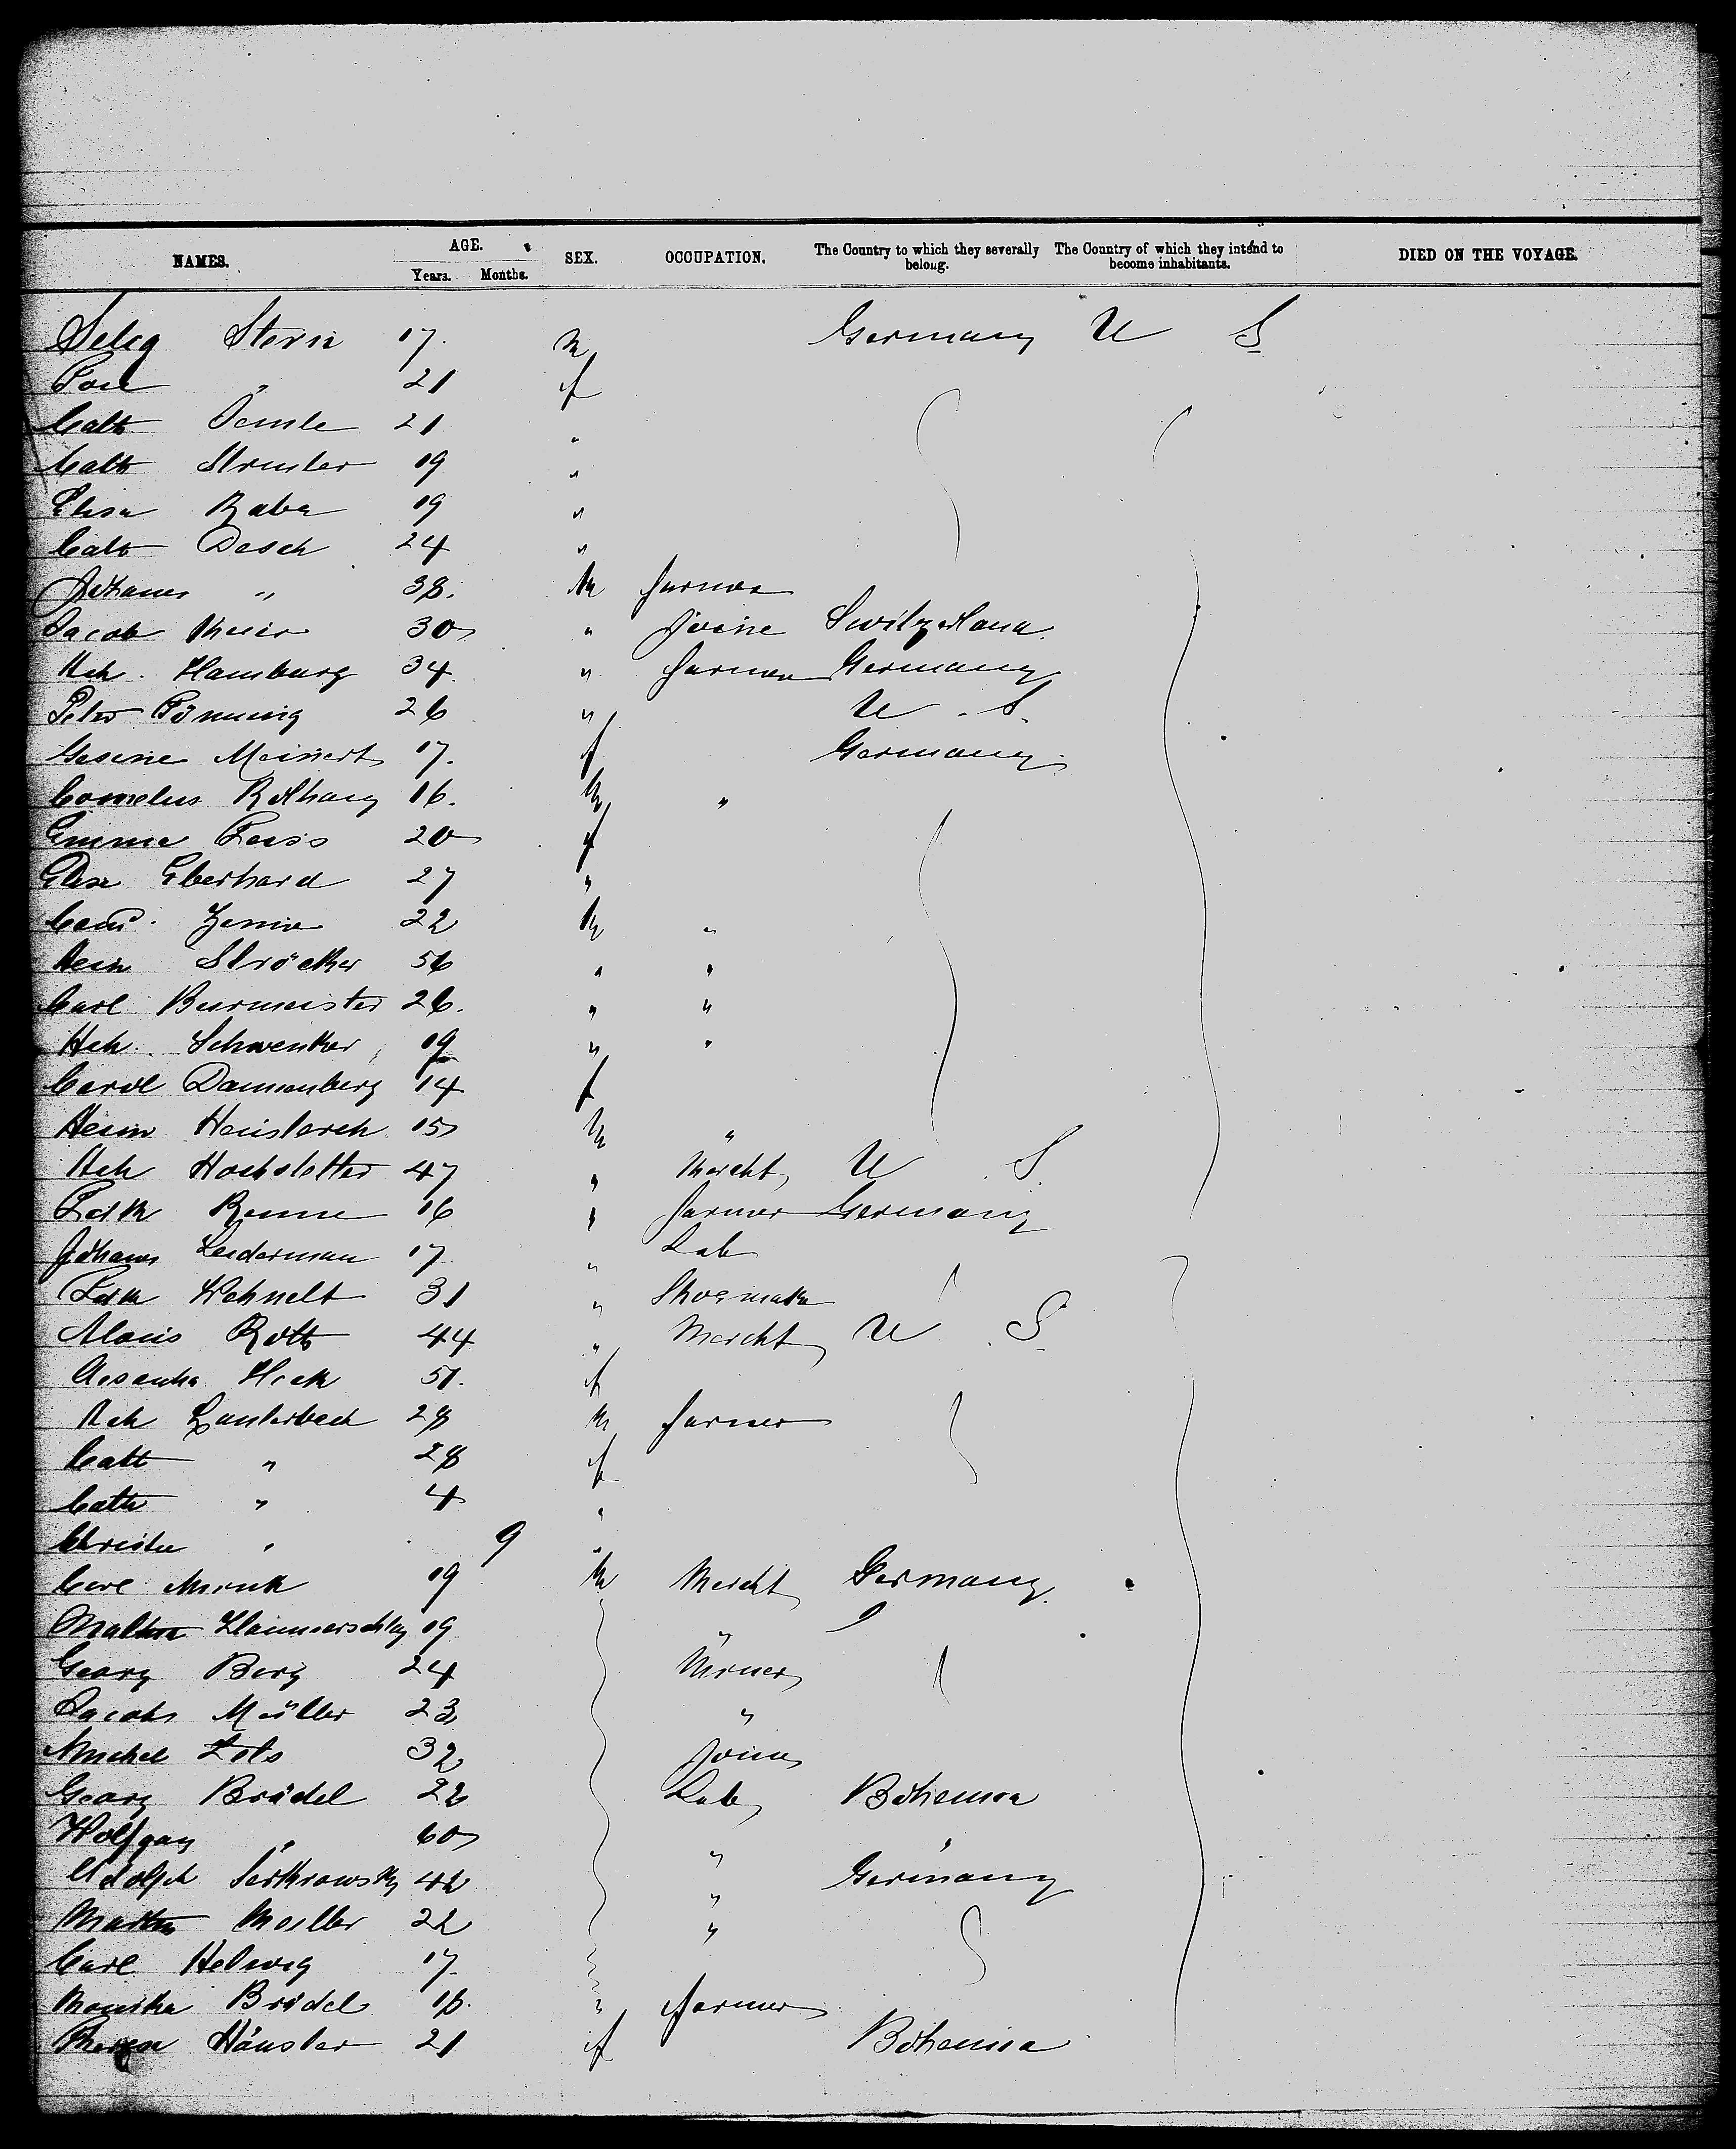 NAMES. AGE. Years. Months. SEX. OCCUPATION. The Country to which they severally belong. The Country of which they intend to become inhabitants. DIED ON THE VOYAGE.
Selig Stern 17. m Germany U S
" 21 f
Cath 21 "
Cath 19 "
Elisa Raba 19 "
Cath Desch 24 "
Johann " 38. m farmer
Jacob Meier 30 " Joine Switzerland
Hch. Hamburg 34 " farmer Germany
Peter 26 " U. S.
Gesine Meinert 17. f Germany
Cornelius 16. m "
Emma 20 f
Elise Eberhard 27 "
22 m "
Herm Ströcker 56 " "
Carl Burmeister 26. " "
Hch. Schwenker 19 " "
Carol Dannenberg 14 f
Herm 15 m "
Hch Hochstetter 47 " Mercht U S.
Renne 16 " farmer Germany
Johann Lederman 17 " Lab
Wehnelt 31 " Shoemaker
Alois Roth 44 " Mercht U. S.
Heck 51. f
Hch Lauterbach 28 m farmer
Cath " 28 f
Cath " 4 "
Christn " 9 "
Carl Munk 19 m Mercht Germany
Hammerschlag 19 "
Georg Berg 24 Mirner
Jacob Müller 23 "
Michel 32 Joine
Georg Brädel 22 Lab Bohemia
Wolfgang " 60 " "
Adolph 42 " Germany
Martin Moeller 22 "
Carl Helwig 17.
Monika Brädel 18. " farmer
Therese Häusler 21 f Bohemia